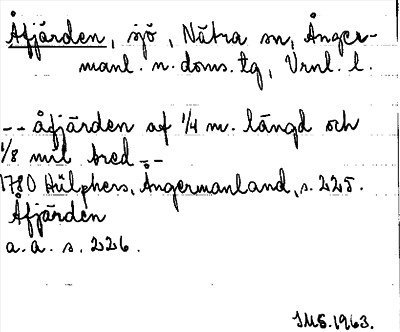 Åfjärden, sjö, Nätra sn, Ånger-
manl. n. doms. tg, Vrnl. l.
-- åfjärden af 1/4 m. längd och
1/8 mil bred --
1780 Hülphers, Ångermanland, s. 225.
Åfjärden
a. a. s. 226.
JMS. 1963.